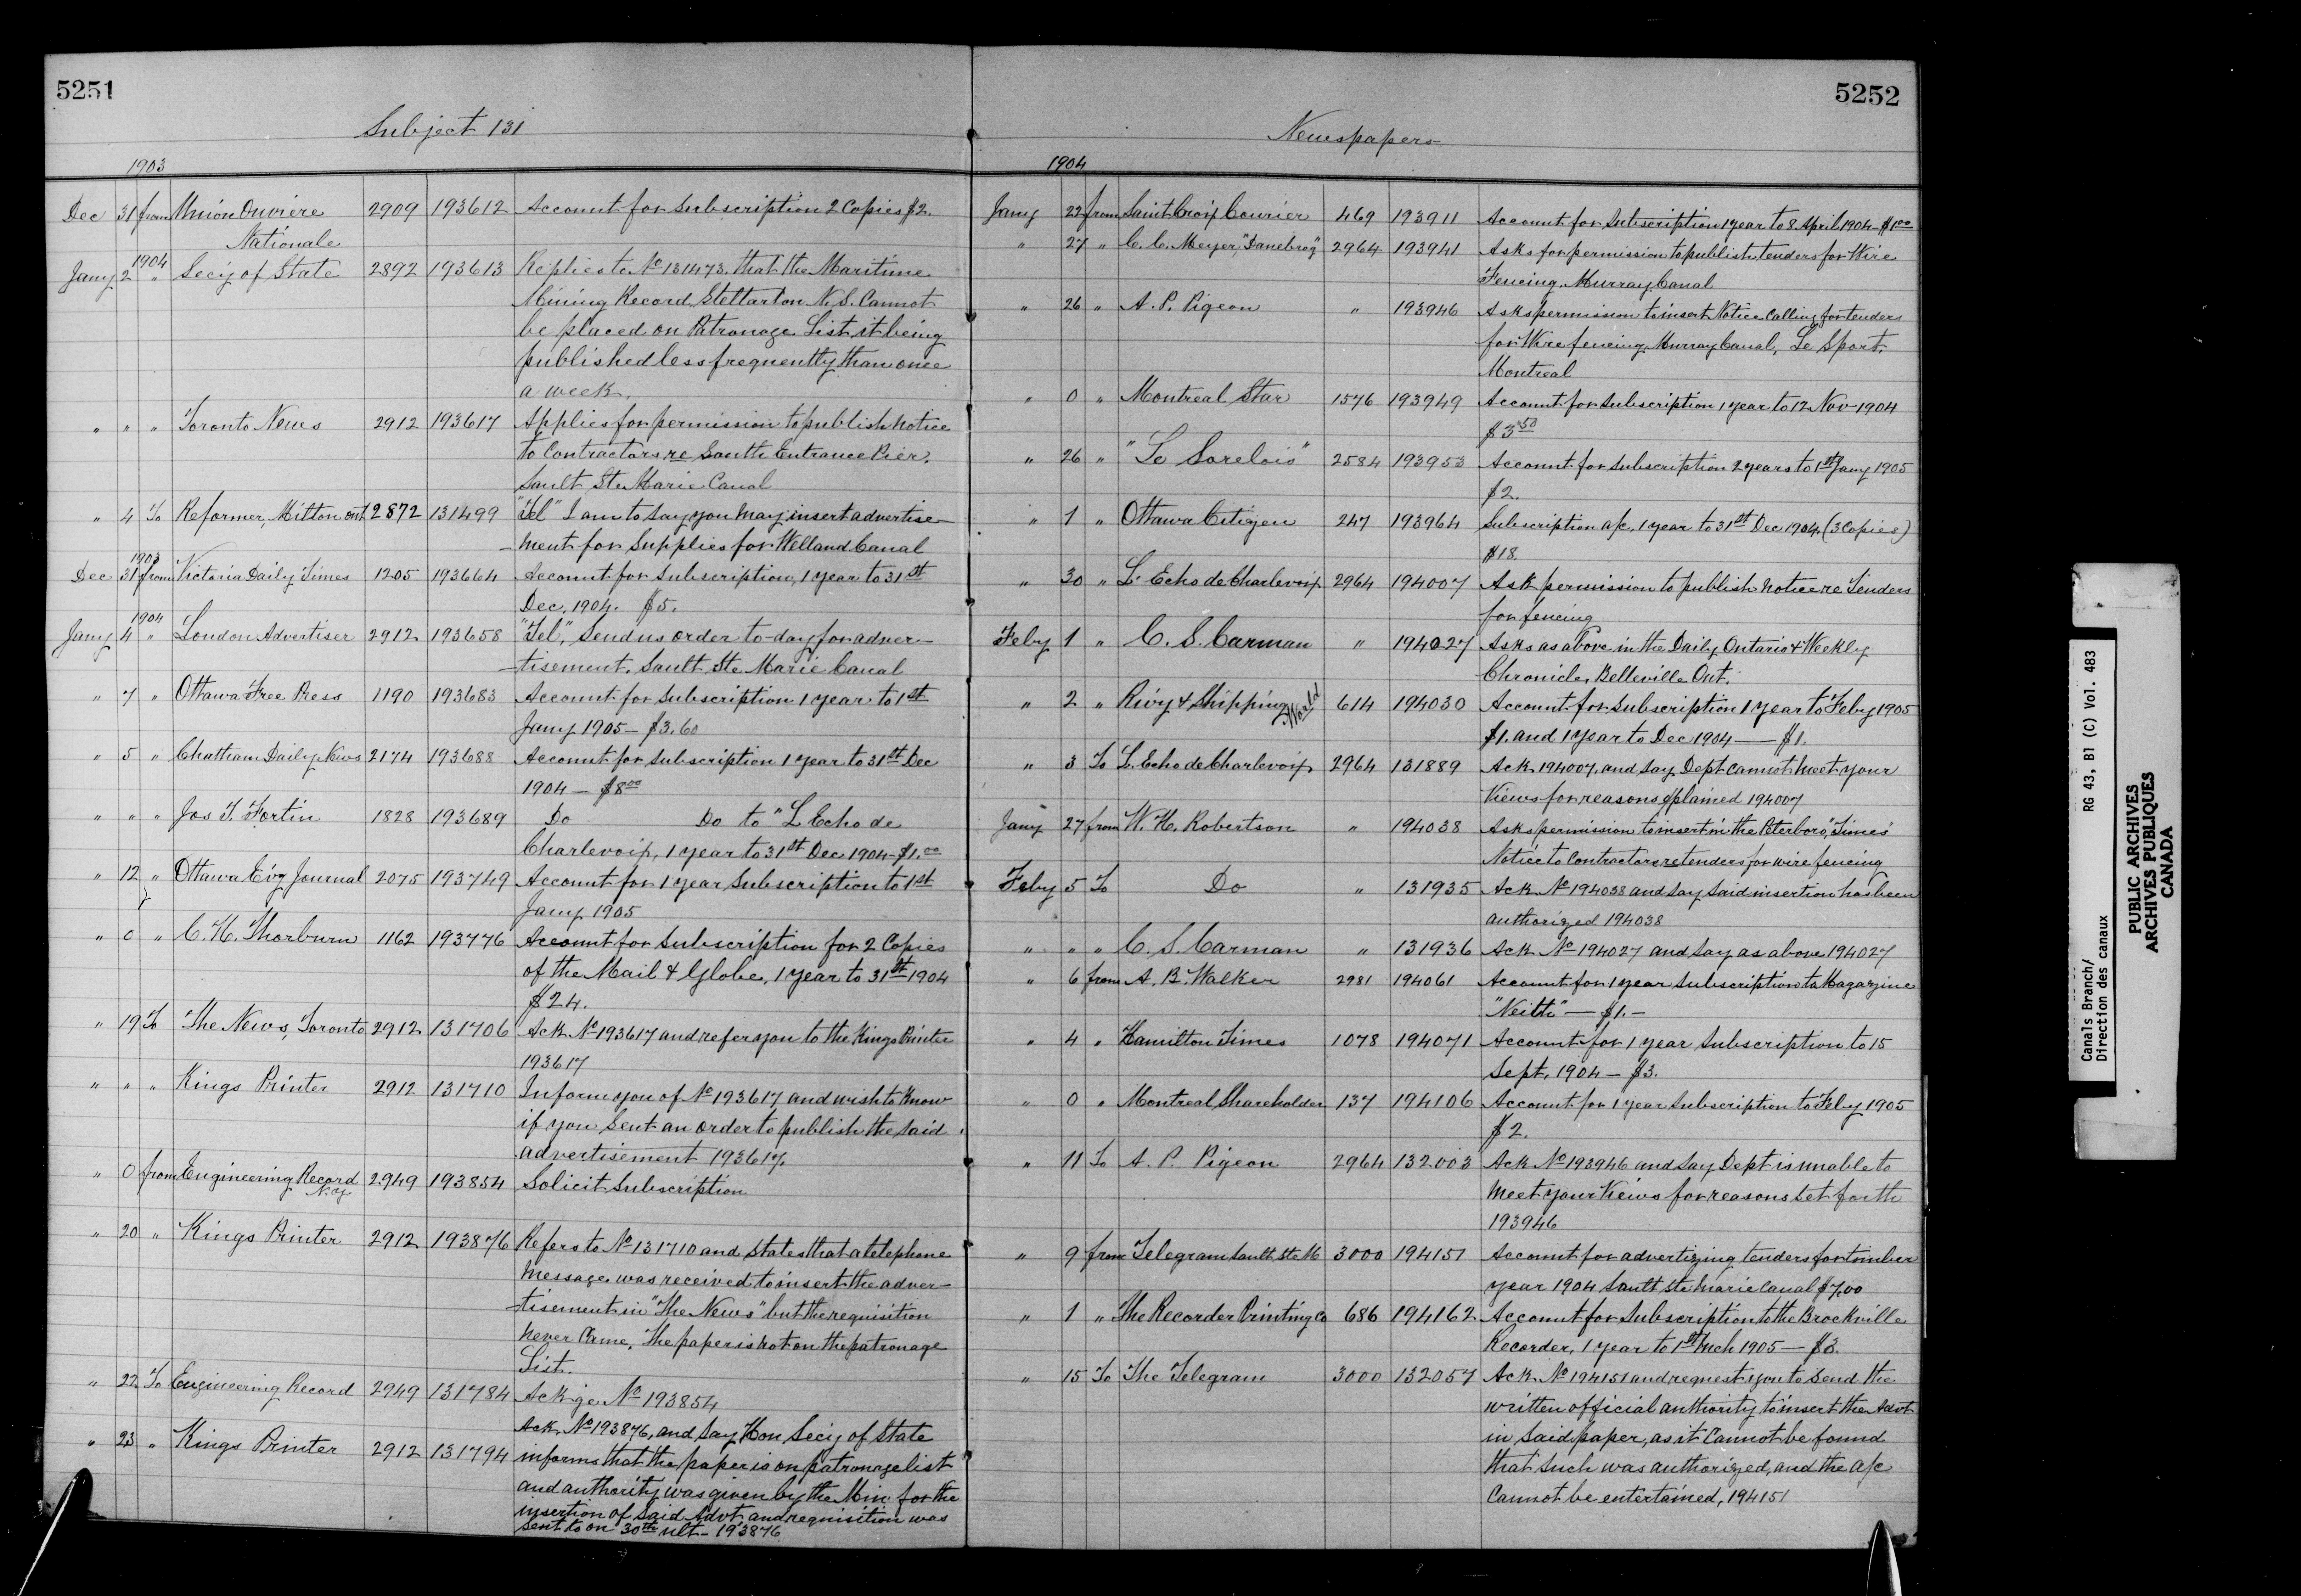 5251
Subject 131
1903
Dec 31 from Union Ouvriere 2909 193612 Account for Subscription 2 Copies $2.
Nationale
1904
Jany 2 " Secy of State 2892 193613 Replies to No 131473. that the Maritime
Mining Record, Stellarton N.S. Cannot
be placed on Patronage List, it being
published less frequently than once
a week.
" " " Toronto News 2912 193617 Applies for permission to publish notice
to Contractors re South Entrance Pier.
Sault Ste Marie Canal
" 4 To Reformer, Milton Ont 2872 131499 "Tel" I am to say you may insert advertise-
-ment for Supplies for Welland Canal
1903
Dec 31 from Victoria Daily Times 1205 193664 Account for Subscription, 1 year to 31st
Dec. 1904. $5.
1904
Jany 4 " London Advertiser 2912 193658 "Tel", Send us order to-day for adver-
-tisement, Sault Ste Marie Canal
" 7 " Ottawa Free Press 1190 193683 Account for Subscription 1 year to 1st
Jany 1905 - $3.60
" 5 " Chatham Daily News 2174 193688 Account for Subscription 1 year to 31st Dec
1904 - $8.00
" " " Jos T. Fortin 1828 193689 Do Do to "L'Echo de
Charlevoix, 1 year to 31st Dec 1904 - $1.00
" 12 " Ottawa Ev'g Journal 2075 193749 Account for 1 year Subscription to 1st
Jany 1905
" 0 " C. H. Thorburn 1162 193776 Account for Subscription for 2 Copies
of the Mail & Globe, 1 year to 31st 1904
$24.
" 19 To The News, Toronto 2912 131706 Ack No 193617 and refer you to the Kings Printer
193617
" " " Kings Printer 2912 131710 Inform you of No 193617 and wish to know
if you sent an order to publish the said
advertisement 193617
" 0 from Engineering Record 2949 193854 Solicit Subscription
N.Y.
" 20 " Kings Printer 2912 193876 Refers to No 131710 and states that a telephone
message was received to insert the adver-
-tisement in "The News" but the requisition
never came. The paper is not on the patronage
List.
" 22 To Engineering Record 2949 131784 Ackge No 193854
" 23 " Kings Printer 2912 131794 Ack No 193876, and say Hon Secy of State
informs that the paper is on patronage list
and authority was given by the Min. for the
insertion of said Advt. and requisition was
sent to on 30th ult - 193876
5252
Newspapers
1904
Jany 22 from Saint Croix Courier 469 193911 Account for Subscription 1 year to 8 April 1904 - $1.00
" 27 " C. C. Meyer, "Danebrog" 2964 193941 Asks for permission to publish tenders for Wire
Fencing. Murray Canal
" 26 " A. P. Pigeon " 193946 Asks permission to insert Notice Calling for tenders
for Wire fencing, Murray Canal, Le Sport,
Montreal
" 0 " Montreal Star 1576 193949 Account for Subscription 1 year to 12 Nov 1904
$3.50
" 26 " "Le Sorelois" 2584 193953 Account for Subscription 2 years to 1st Jany 1905
$2.
" 1 " Ottawa Citizen 247 193964 Subscription a/c, 1 year to 31st Dec 1904. (3 Copies)
$18.
" 30 " L'Echo de Charlevoix 2964 194007 Ask permission to publish notice re Tenders
for fencing
Feby 1 " C. S. Carman " 194027 Asks as above in the Daily Ontario & Weekly
Chronicle, Belleville Ont.
" 2 " Rwy & Shipping World 614 194030 Account for Subscription 1 year to Feby 1905
$1. and 1 year to Dec 1904 — $1.
" 3 To L'Echo de Charlevoix 2964 131889 Ack 194007, and say Dept cannot meet your
views for reasons explained 194007
Jany 27 from W. H. Robertson " 194038 Asks permission to insert in the Peterboro, "Times"
Notice to Contractors re tenders for wire fencing
Feby 5 To Do " 131935 Ack No 194038 and say said insertion has been
authorized 194038
" " " C. S. Carman " 131936 Ack No 194027 and say as above 194027
" 6 from A. B. Walker 2981 194061 Account for 1 year Subscription to Magazine
"Neith" — $1. -
" 4 " Hamilton Times 1078 194071 Account for 1 year Subscription to 15
Sept. 1904 - $3.
" 0 " Montreal Shareholder 137 194106 Account for 1 year Subscription to Feby 1905
$2.
" 11 To A. P. Pigeon 2964 132003 Ack No 193946 and say Dept is unable to
meet your views for reasons set forth
193946
" 9 from Telegram Sault Ste M 3000 194151 Account for advertizing tenders for timber
year 1904 Sault Ste Marie Canal $7.00
" 1 " The Recorder Printing Co 686 194162 Account for Subscription to the Brockville
Recorder, 1 year to 1st Mch 1905 - $3.
" 15 To The Telegram 3000 132057 Ack No 194151 and request you to send the
written official authority to insert the Advt
in said paper, as it cannot be found
that such was authorized, and the a/c
cannot be entertained, 194151
Canals Branch/
Direction des canaux
RG 43, B1 (C) Vol. 483
PUBLIC ARCHIVES
ARCHIVES PUBLIQUES
CANADA